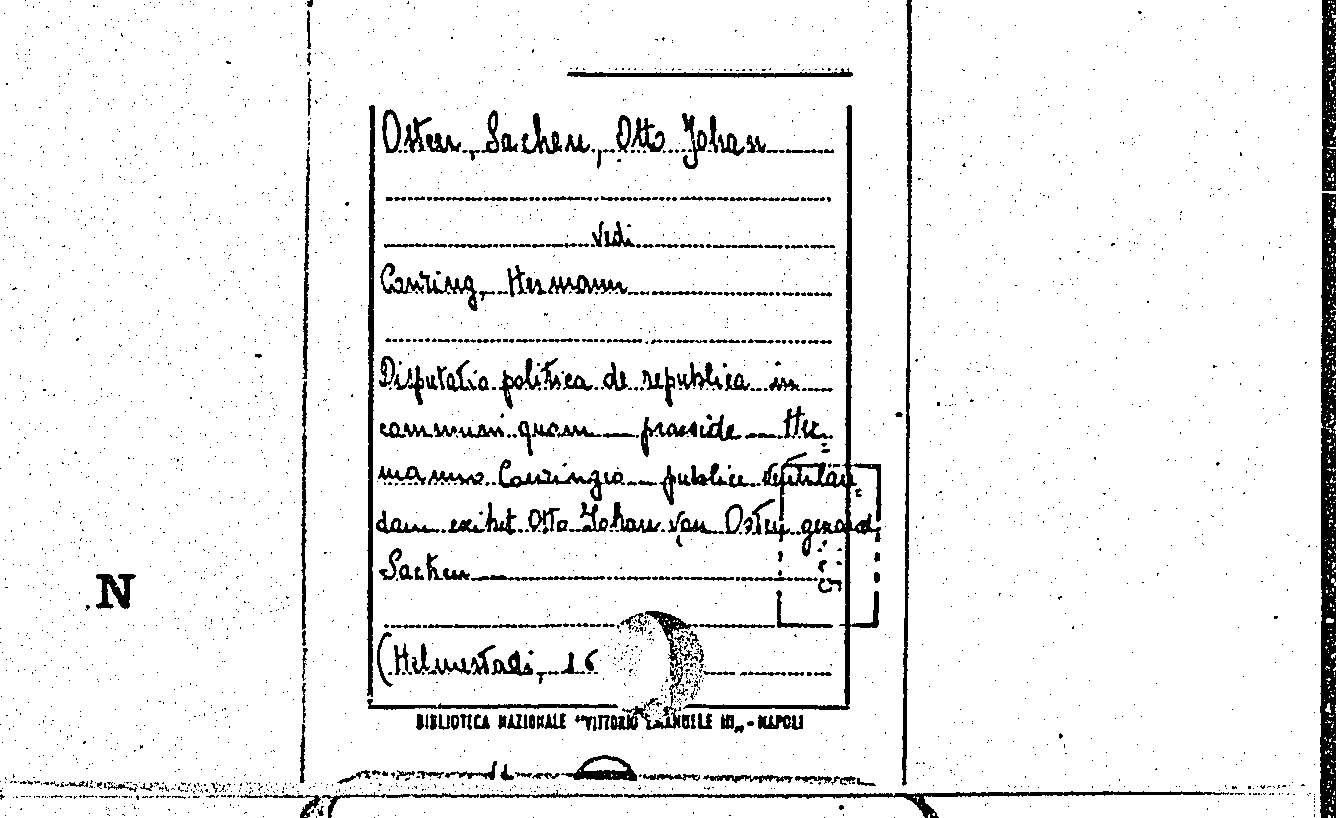 Osten, Sachen, Otto Johan
vedi
Conring, Hermann
Disputatio politica de republica in
communi quam — praeside — Her=
manno Conringio — publice ventilan=
dam exibet Otto Johan van Osten genand
Sacken —
N
(Helmestadi, 16
BIBLIOTECA NAZIONALE "VITTORIO EMANUELE III„ - NAPOLI